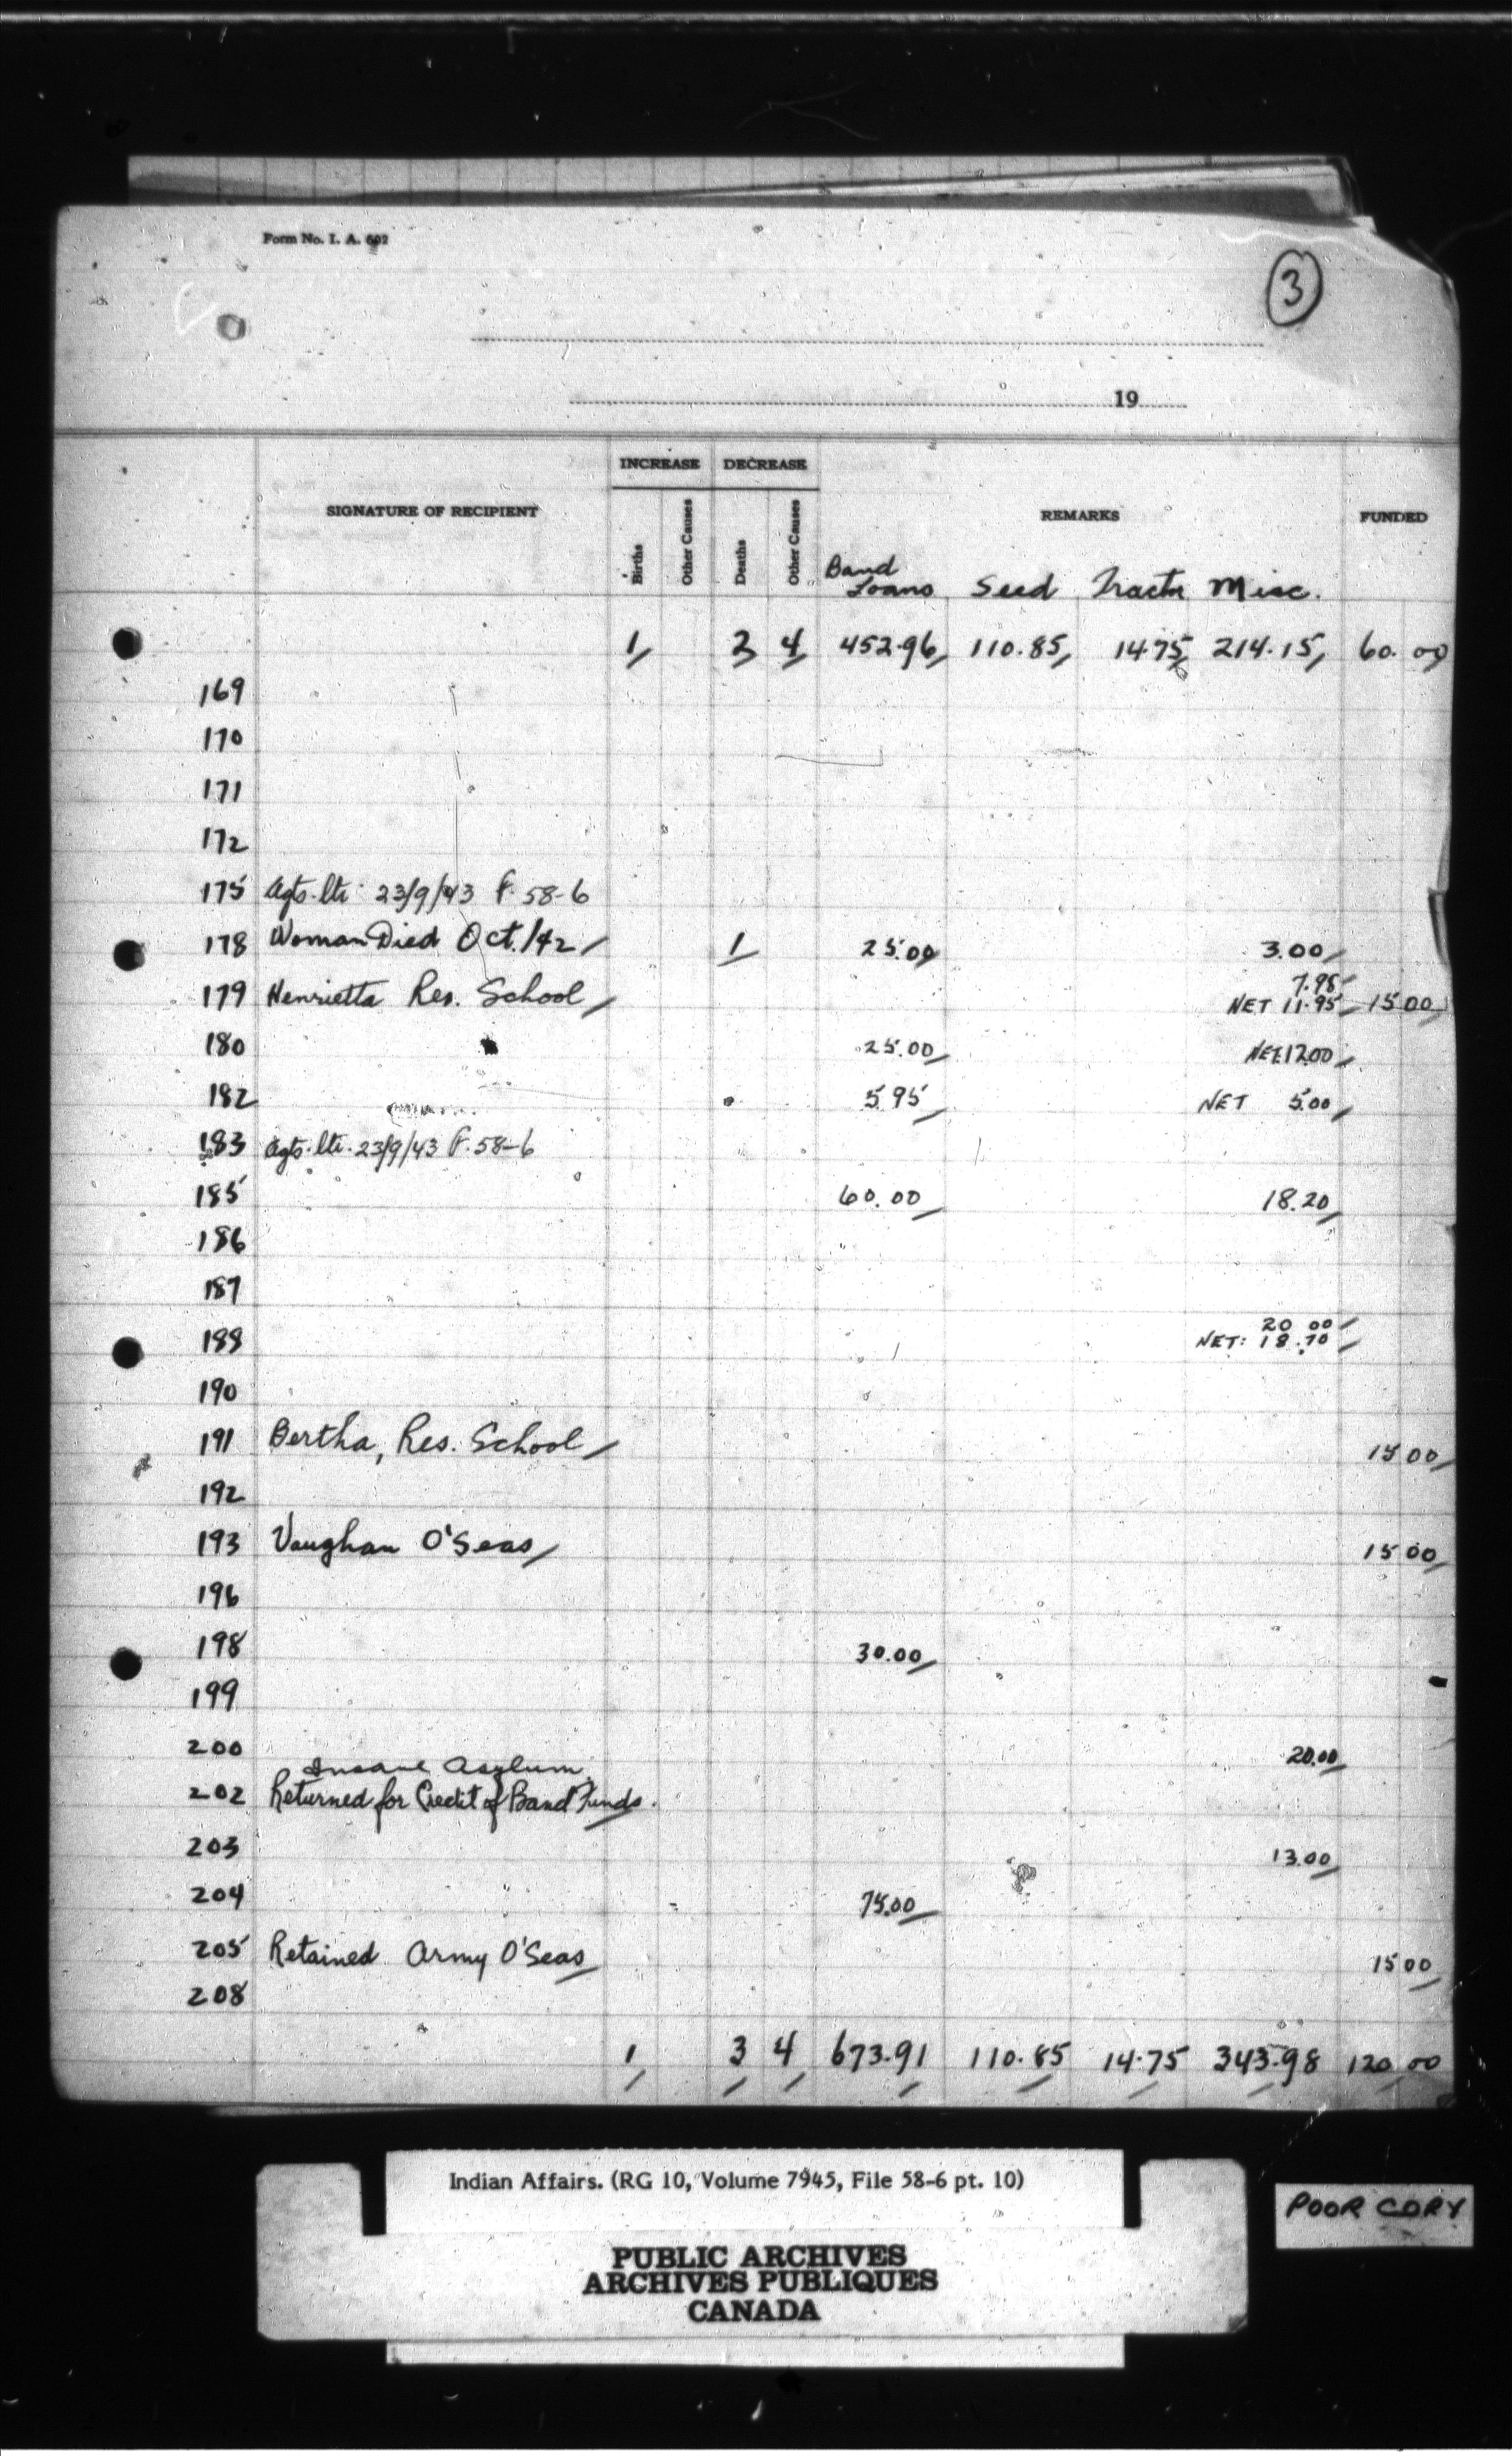 Form No. I. A. 602
3
19
INCREASE DECREASE
SIGNATURE OF RECIPIENT Births Other Causes Deaths Other Causes REMARKS FUNDED
Band Loans Seed Tractor Misc.
1 2 4 452.96 110.85 14.75 214.15 60.00
169
170
171
172
175 Agts. ltr. 23/9/43 F. 58-6
178 Woman Died Oct./42 1 25.00 3.00
7.98
179 Henrietta Res. School NET 11.95 15 00
180 25.00 NET 12.00
182 5.95 NET 5.00
183 Agts. ltr. 23/9/43 F. 58-6
185 60.00 18.20
186
187
20 00
188 NET: 18.70
190
191 Bertha, Res. School 15 00
192
193 Vaughan O'Seas 15 00
196
198 30.00
199
200 20.00
Insane Asylum
202 Returned for Credit of Band Funds.
203 13.00
204 75.00
205 Retained Army O'Seas 15 00
208
1 3 4 673.91 110.85 14.75 343.98 120 00
Indian Affairs. (RG 10, Volume 7945, File 58-6 pt. 10)
PUBLIC ARCHIVES
ARCHIVES PUBLIQUES
CANADA
POOR COPY